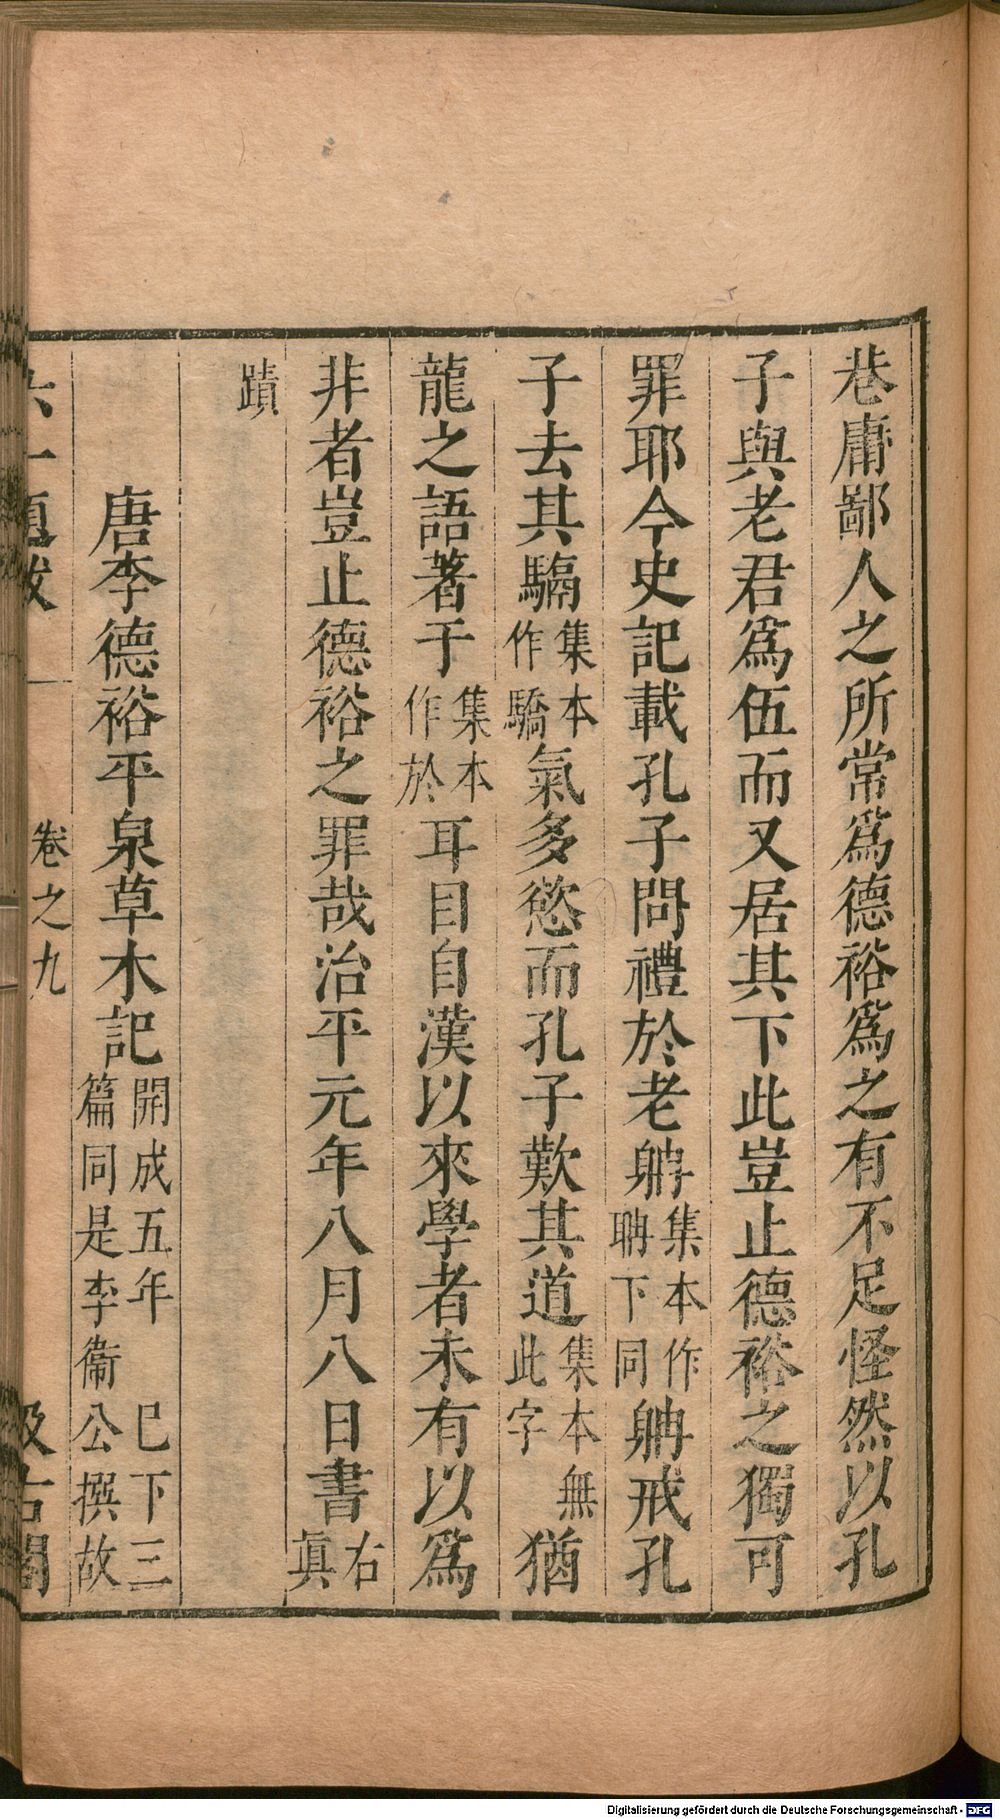 巷庸鄙人之所常爲德裕爲之有不足怪然以孔
子與老君爲伍而又居其下此豈止德裕之獨可
罪耶今史記載孔子問禮於老𦕈集本作聃下同𦕈戒孔
子去其騧集本作驕氣多慾而孔子歎其道集本無此字猶
龍之語著于集本作於耳目自漢以來學者未有以爲
非者豈止德裕之罪哉治平元年八月八日書右眞
蹟
唐李德裕平泉草木記開成五年 巳下三篇同是李衞公撰故
六一題跋 卷之九 汲古閣
Digitalisierung gefördert durch die Deutsche Forschungsgemeinschaft - DFG